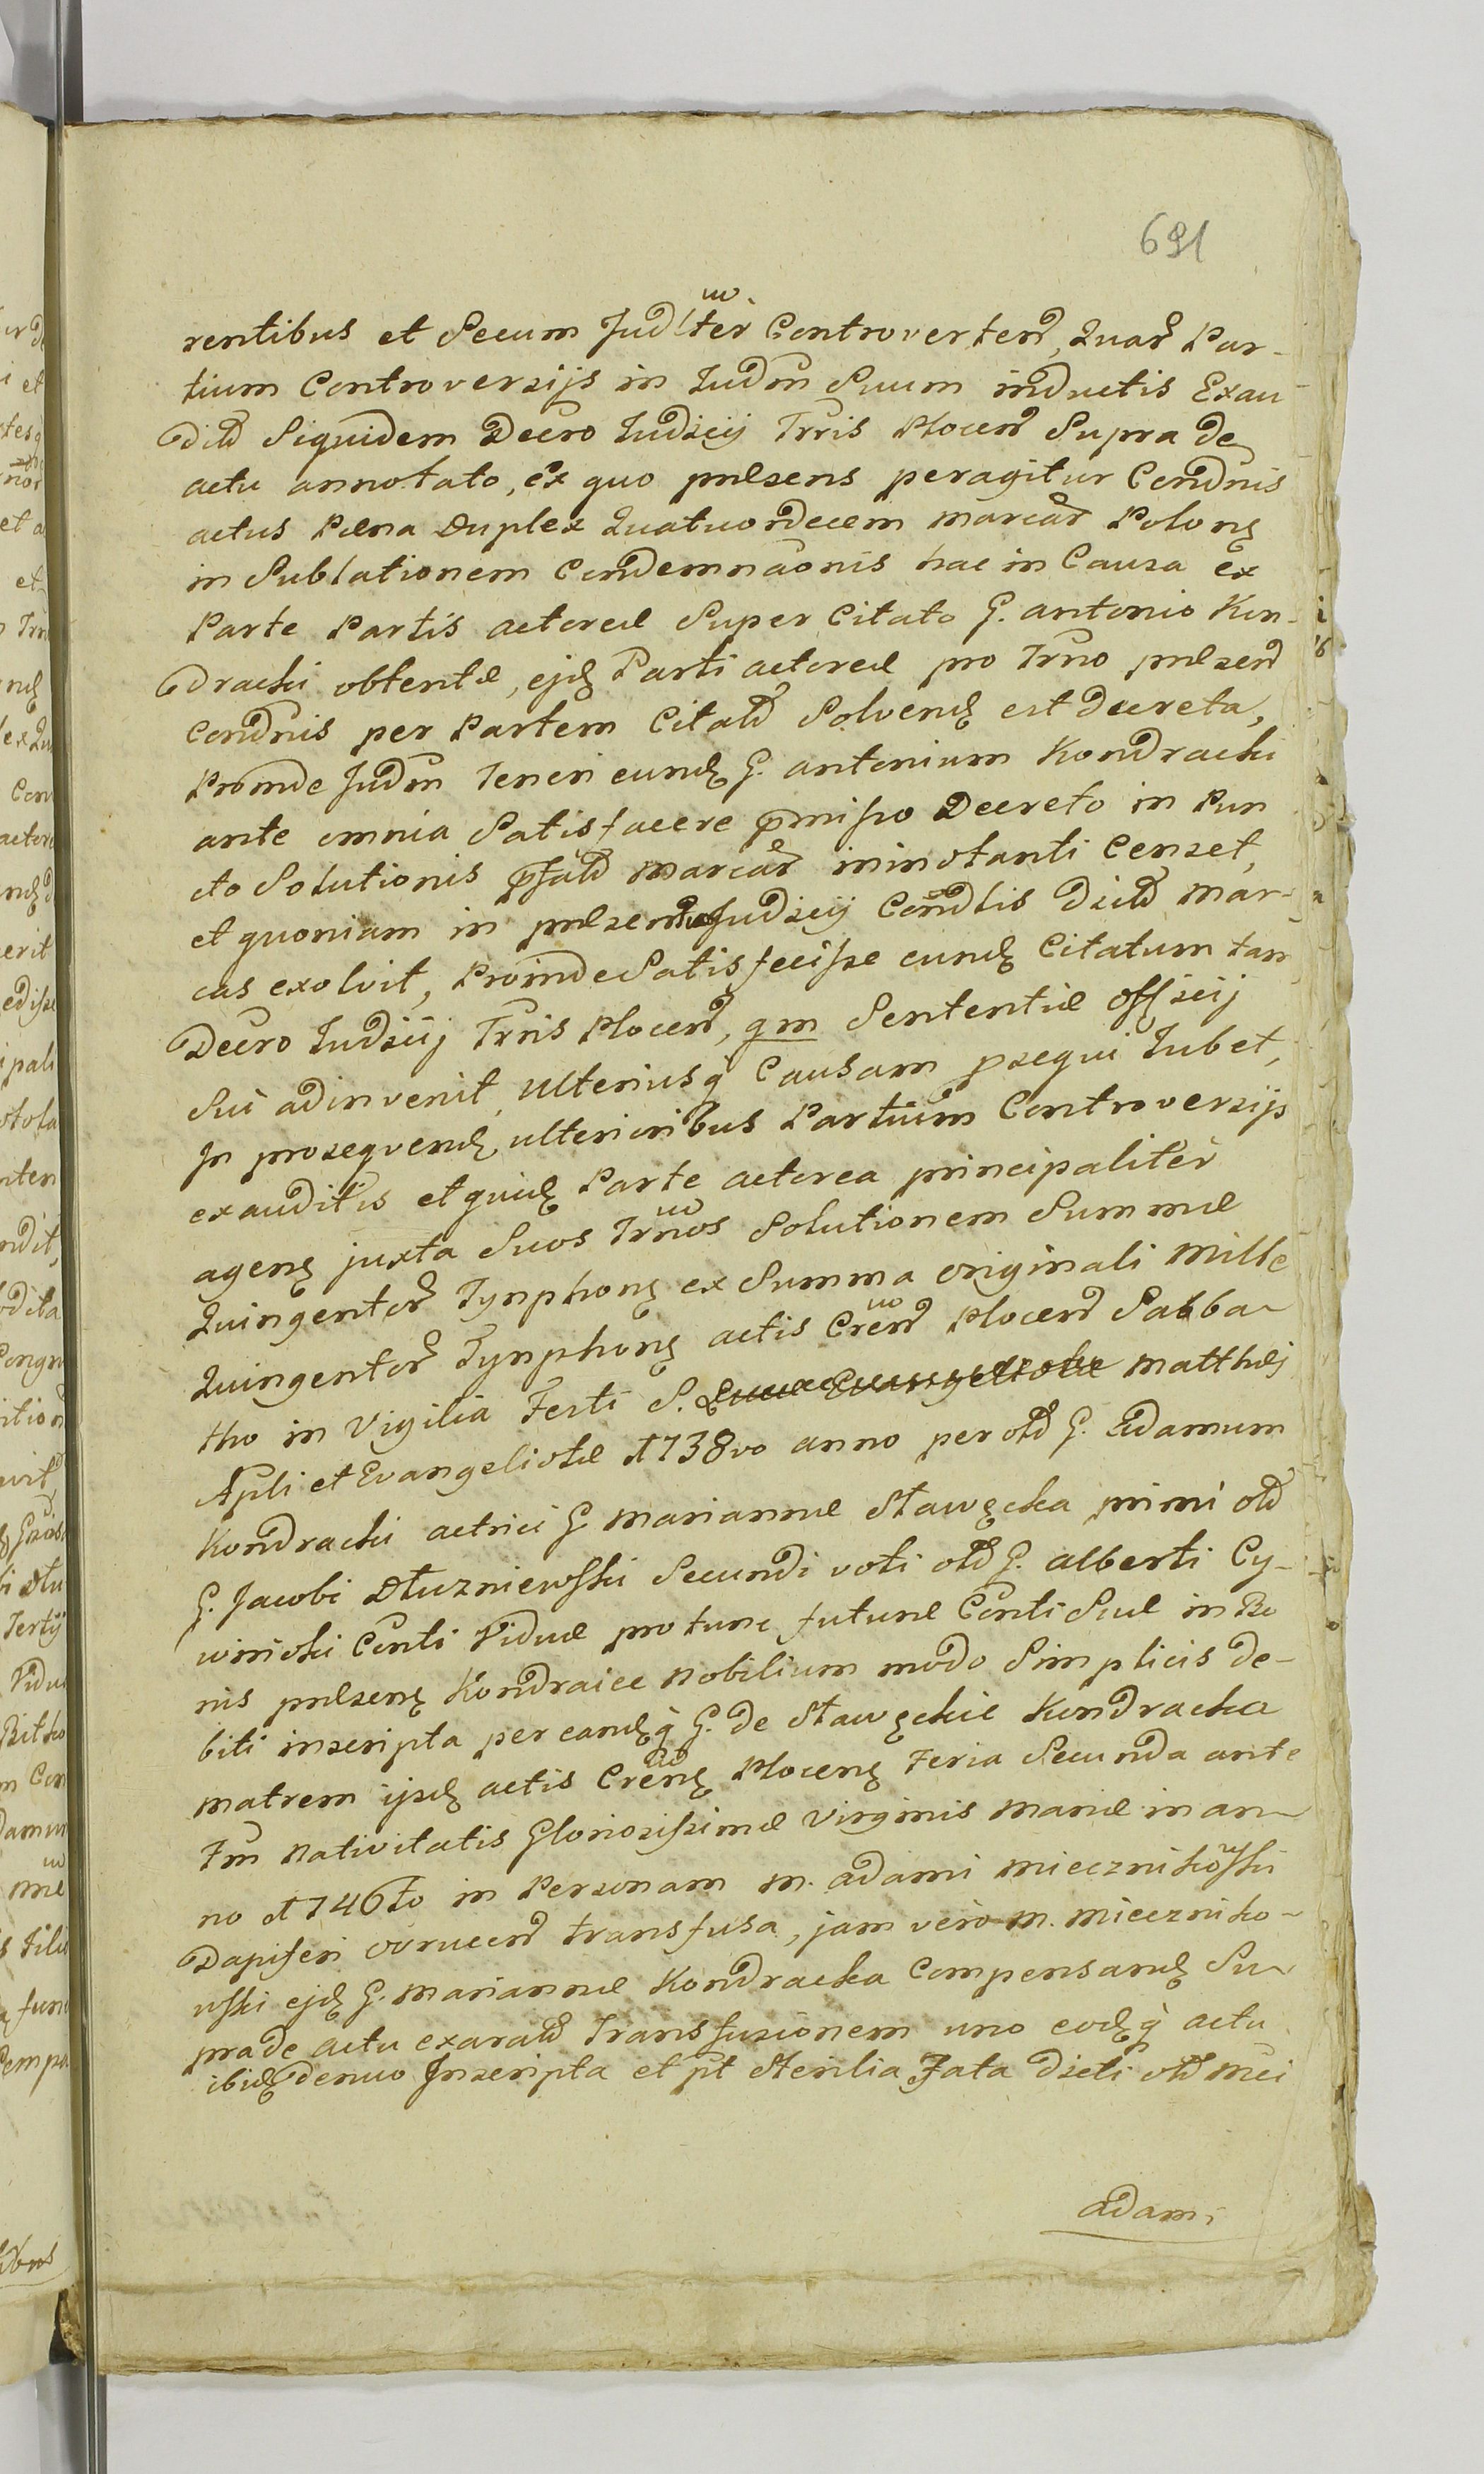 691
rentibus et Secum Judlter Controverten, Quar Par-
tium Controversijs in Judm Suum inductis Exau
ditd Siquidem Decro Judzcij Trris Plocen Supra de
actu annotato, ex quo pnlsens peragitur Condnis
actus Pæna Duplex Quatuordecem marcar Polonę
in Sublationem Condemnaonis hac in Causa ex
Parte Partis actoreæ Super Citato G. antonio Kon-
dracki obtentæ, ejdę Parti actoreæ pro Trno pnlsen
condnis per Partem Citatd Solvendę est decreta,
Proinde Judm Teneri eundę G. antonium Kondracki
ante omnia Satisfacere pmisso Decreto in Pun
cto Solutionis pfatd marcar ininstanti Censet,
et quoniam in pnlsentia Judzcij Condlis dictd mar-
cas exolvit, Proinde Satisfecisse eundę Citatum tam
Decro Judzcij Trris Plocen, qm Sententiæ Offzcij
Sui adinvenit, Ulteriusq Causam psequi Jubet,
In proseqvendę ulterioribus Partium Controversijs
exauditis et quidę Parte actorea principaliter
agenę juxta Suos Trnos Solutionem Summæ
Quingentor Tynphonę ex Summa originali Mille
Quingentor Tynphonę actis Cren Plocen Sabba-
tho in Vigilia Festi S. Lucæ Evangelistæ Matthæj
Apli et Evangelistæ 1738vo anno per old G. Adamum
Kondracki actrici G. Mariannæ Stawęcka primi old
G. Jacobi Dłuzniewski Secundi voti old G. alberti Cy-
winski Conti Viduæ pro tunc futuræ Conti Suæ in Bo
nis pnlsenę Kondraice Nobilium modo Simplicis de-
biti inscripta per eandęq G. de Stawęckie Kondracka
matrem ijsdę actis Crenę Plocenę Feria Secunda ante
Fm Nativitatis Gloriosissimæ Virginis Mariæ in an-
no 1746to in Personam M. adami Mieczniko͠wski
Dapiferi ovrucen transfusa, jam vero M. Miecznikо-
wski ejdę G. Mariannæ Kondracka Compensandę Su-
prade actu exaratd Transfusionem uno eodęq actu
ibidę denuo Inscripta et pt Sterilia Fata dicti old Mci
adami